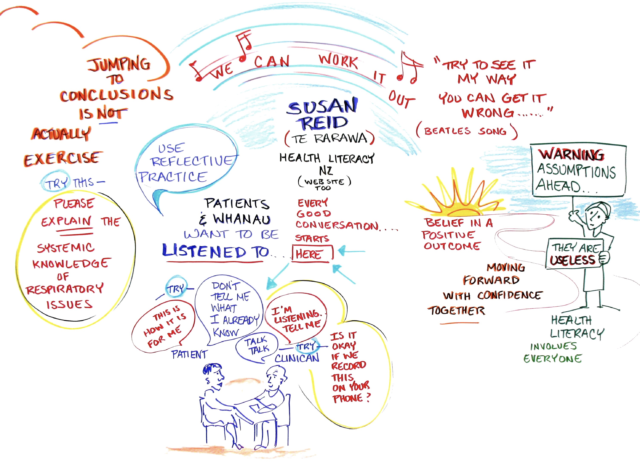 JUMPING
TO
CONCLUSIONS
IS NOT
ACTUALLY
EXERCISE
TRY THIS —
PLEASE
EXPLAIN THE
SYSTEMIC
KNOWLEDGE
OF
RESPIRATORY
ISSUES
WE CAN WORK IT OUT
"TRY TO SEE IT
MY WAY
YOU CAN GET IT
WRONG......"
(BEATLES SONG)
SUSAN
REID
(TE RARAWA)
HEALTH LITERACY
NZ
(WEB SITE)
TOO
USE
REFLECTIVE
PRACTICE
PATIENTS
& WHANAU
WANT TO BE
LISTENED TO...
EVERY
GOOD
CONVERSATION....
STARTS
HERE
TRY
THIS IS
HOW IT IS
FOR ME
PATIENT
DON'T
TELL ME
WHAT
I ALREADY
KNOW
I'M
LISTENING.
TELL ME
TALK
TALK
— TRY —
CLINICAN
IS IT
OKAY
IF WE
RECORD
THIS
ON YOUR
PHONE?
BELIEF IN A
POSITIVE
OUTCOME
MOVING
FORWARD
WITH CONFIDENCE
TOGETHER
WARNING
ASSUMPTIONS
AHEAD...
THEY ARE
USELESS
HEALTH
LITERACY
INVOLVES
EVERYONE